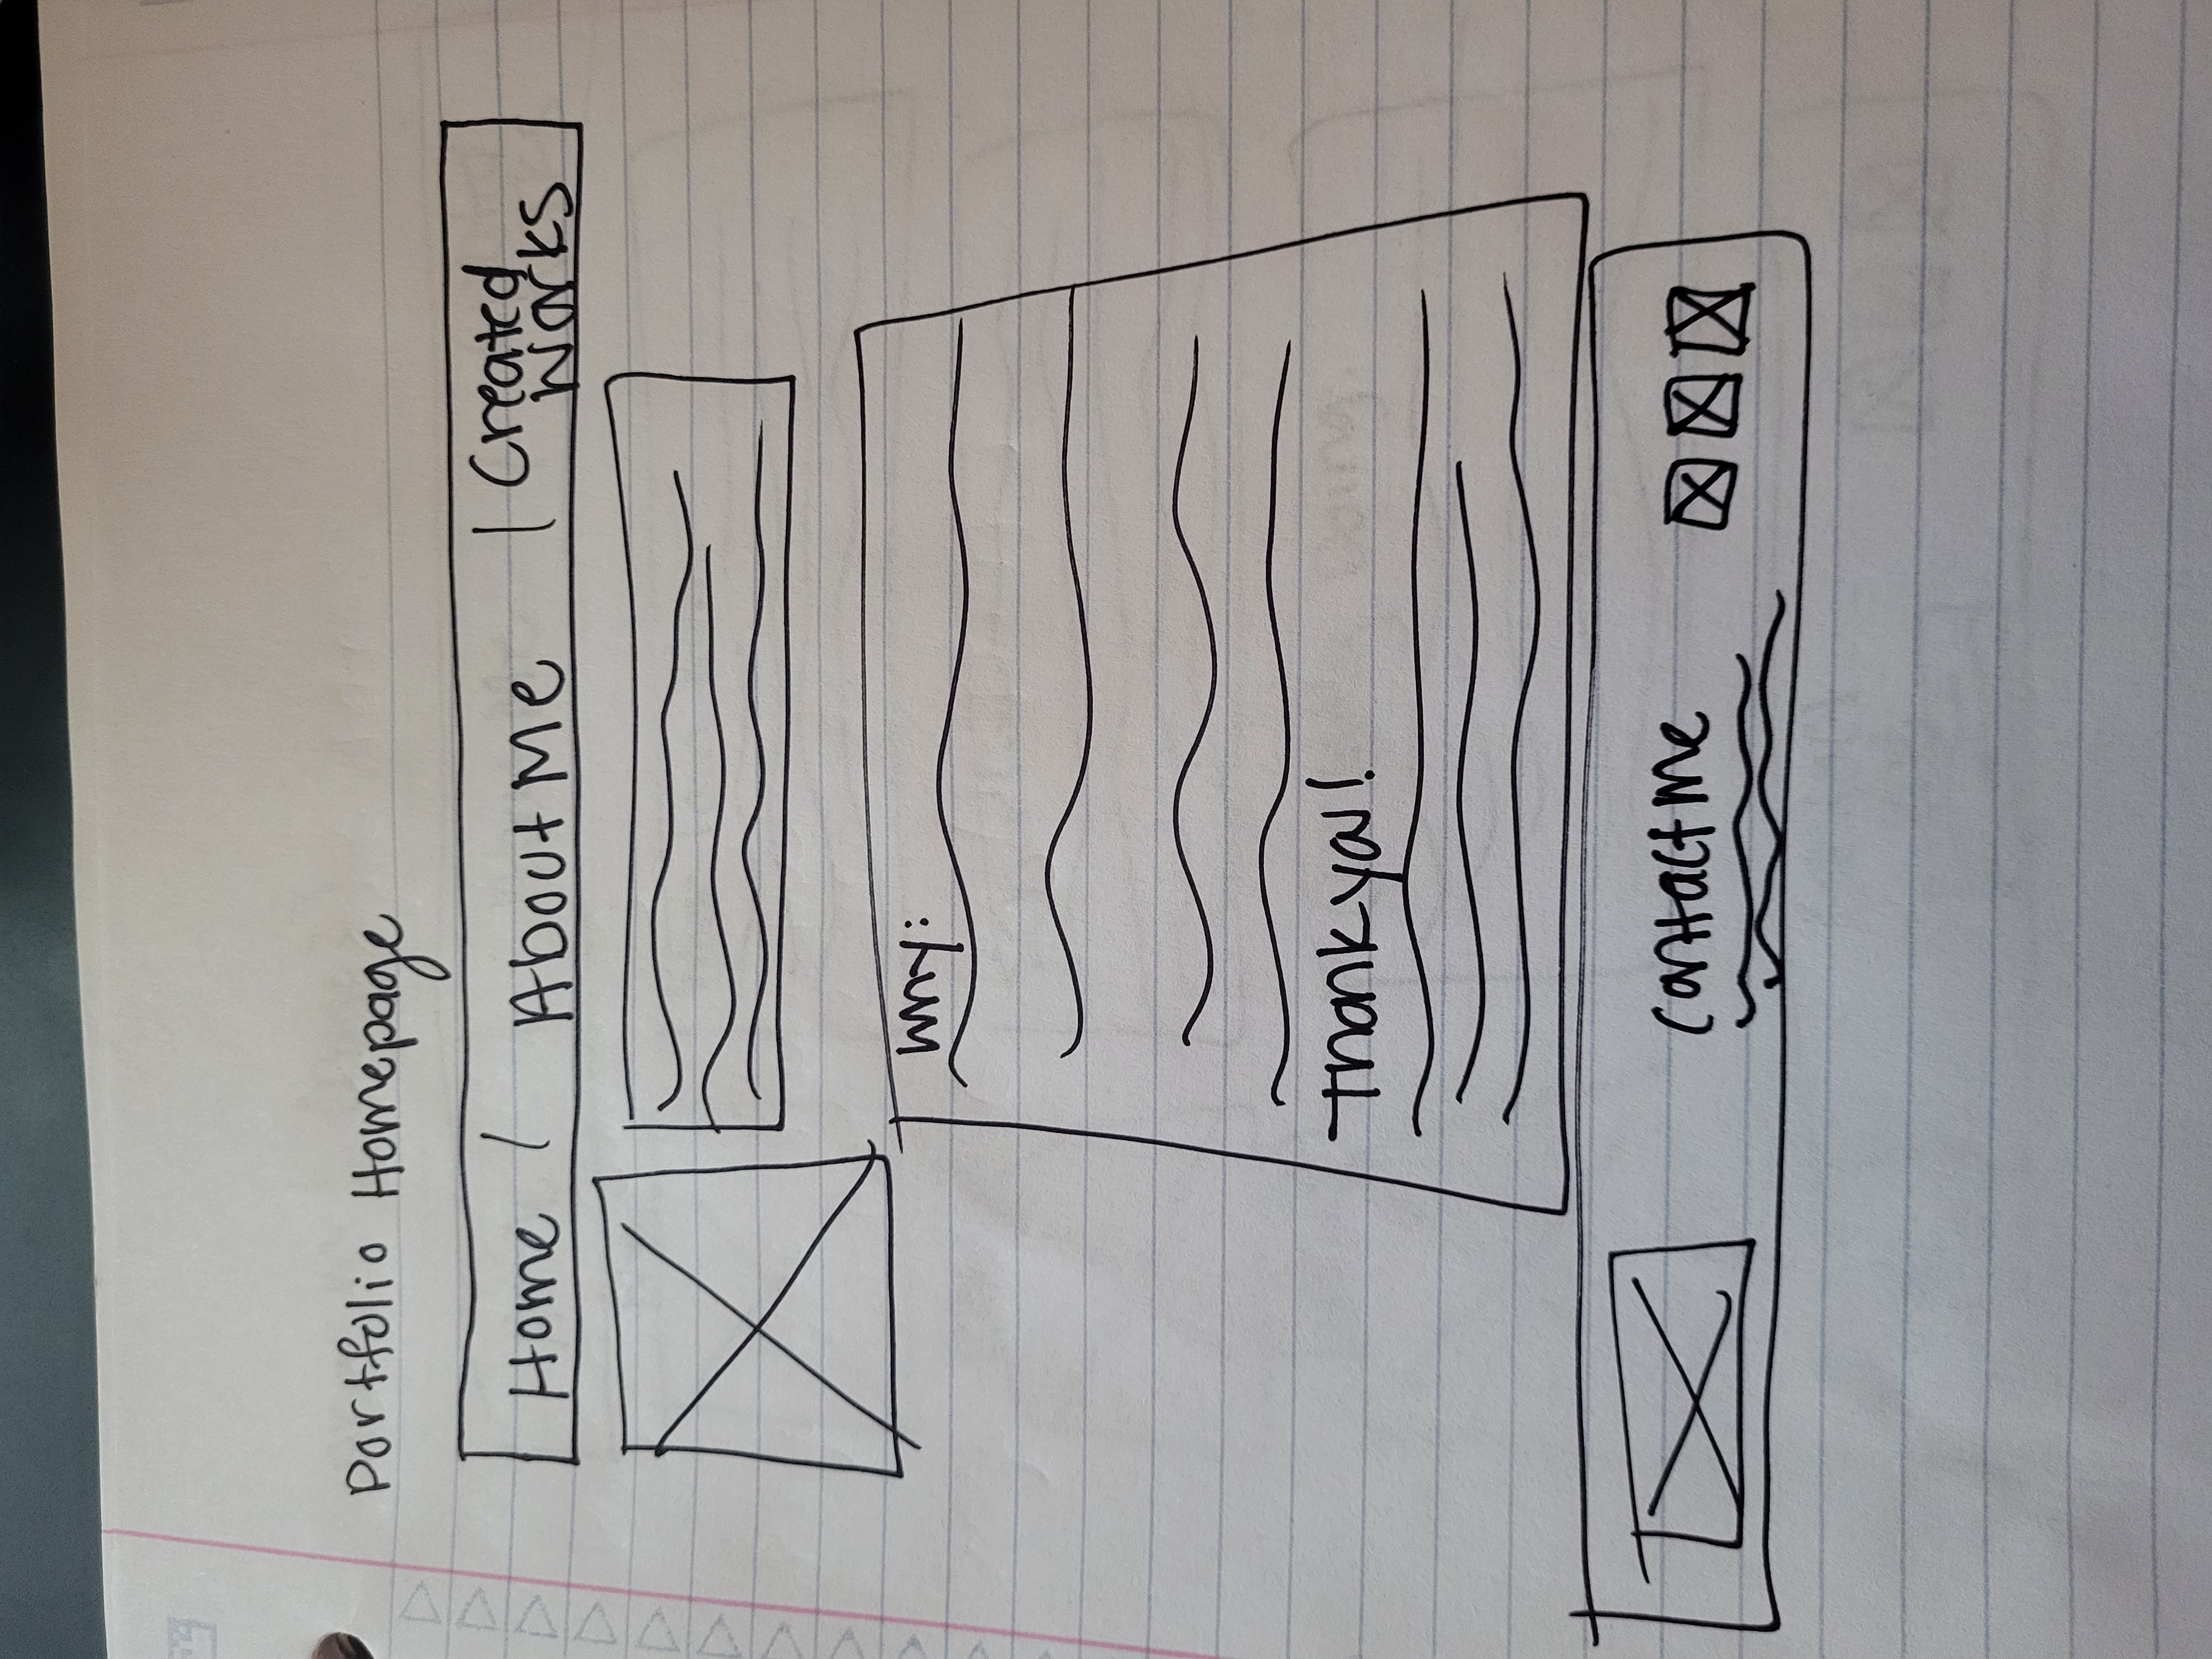 Portfolio Homepage
Home / About Me / Created
Works
Why:
Thank you!
Contact me